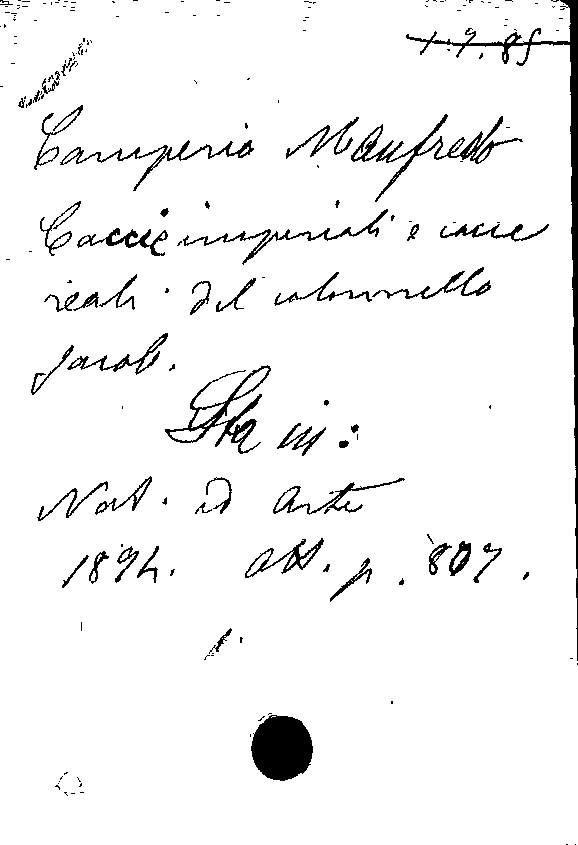 1.9.85
Camperio Manfredo
Caccie imperiali e cacce
reali del colonnello
Jacob.
Sta in:
Nat. ed Arte
1894. Ott. p. 807.